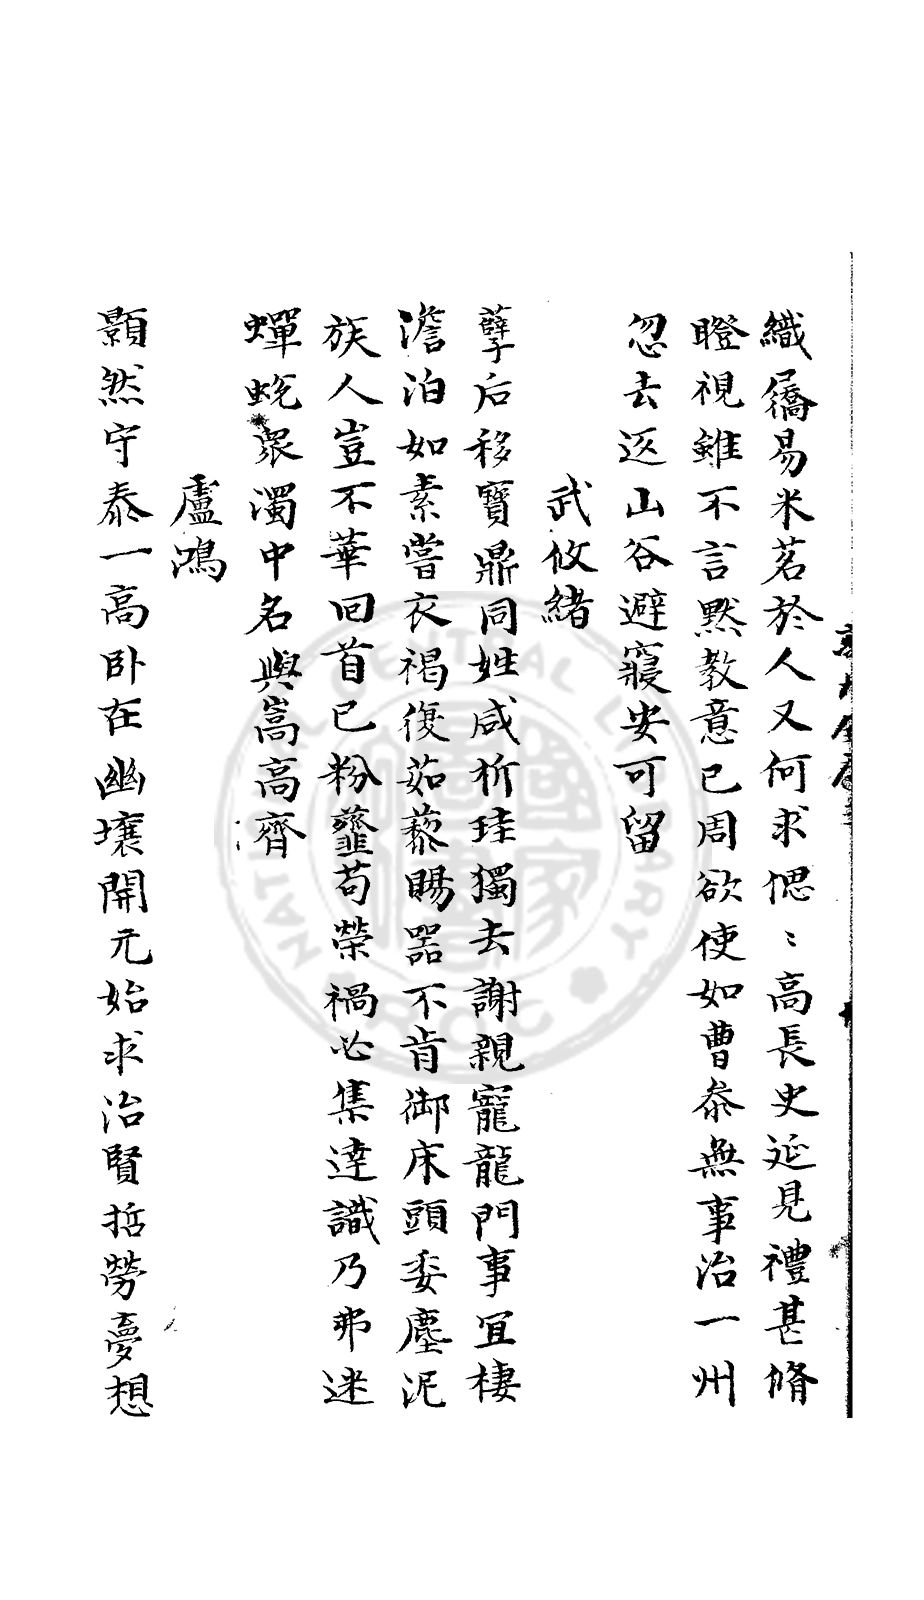 織屩易米茗於人又何求偲〻高長史延見禮甚脩
瞪視雖不言黙教意已周欲使如曹叅無事治一州
忽去返山谷避寵安可留
武攸緒
孽后移寶鼎同姓咸析珪獨去謝親寵龍門事冝棲
澹泊如素嘗衣褐復茹藜賜器不肯御床頭委塵泥
族人豈不華回首已粉虀苟榮禍必集達識乃弗迷
蟬蛻衆濁中名與嵩高齊
盧鴻
顥然守泰一高卧在幽壤開元始求治賢哲勞夢想
NATIONAL CENTRAL LIBRARY
R.O.C.